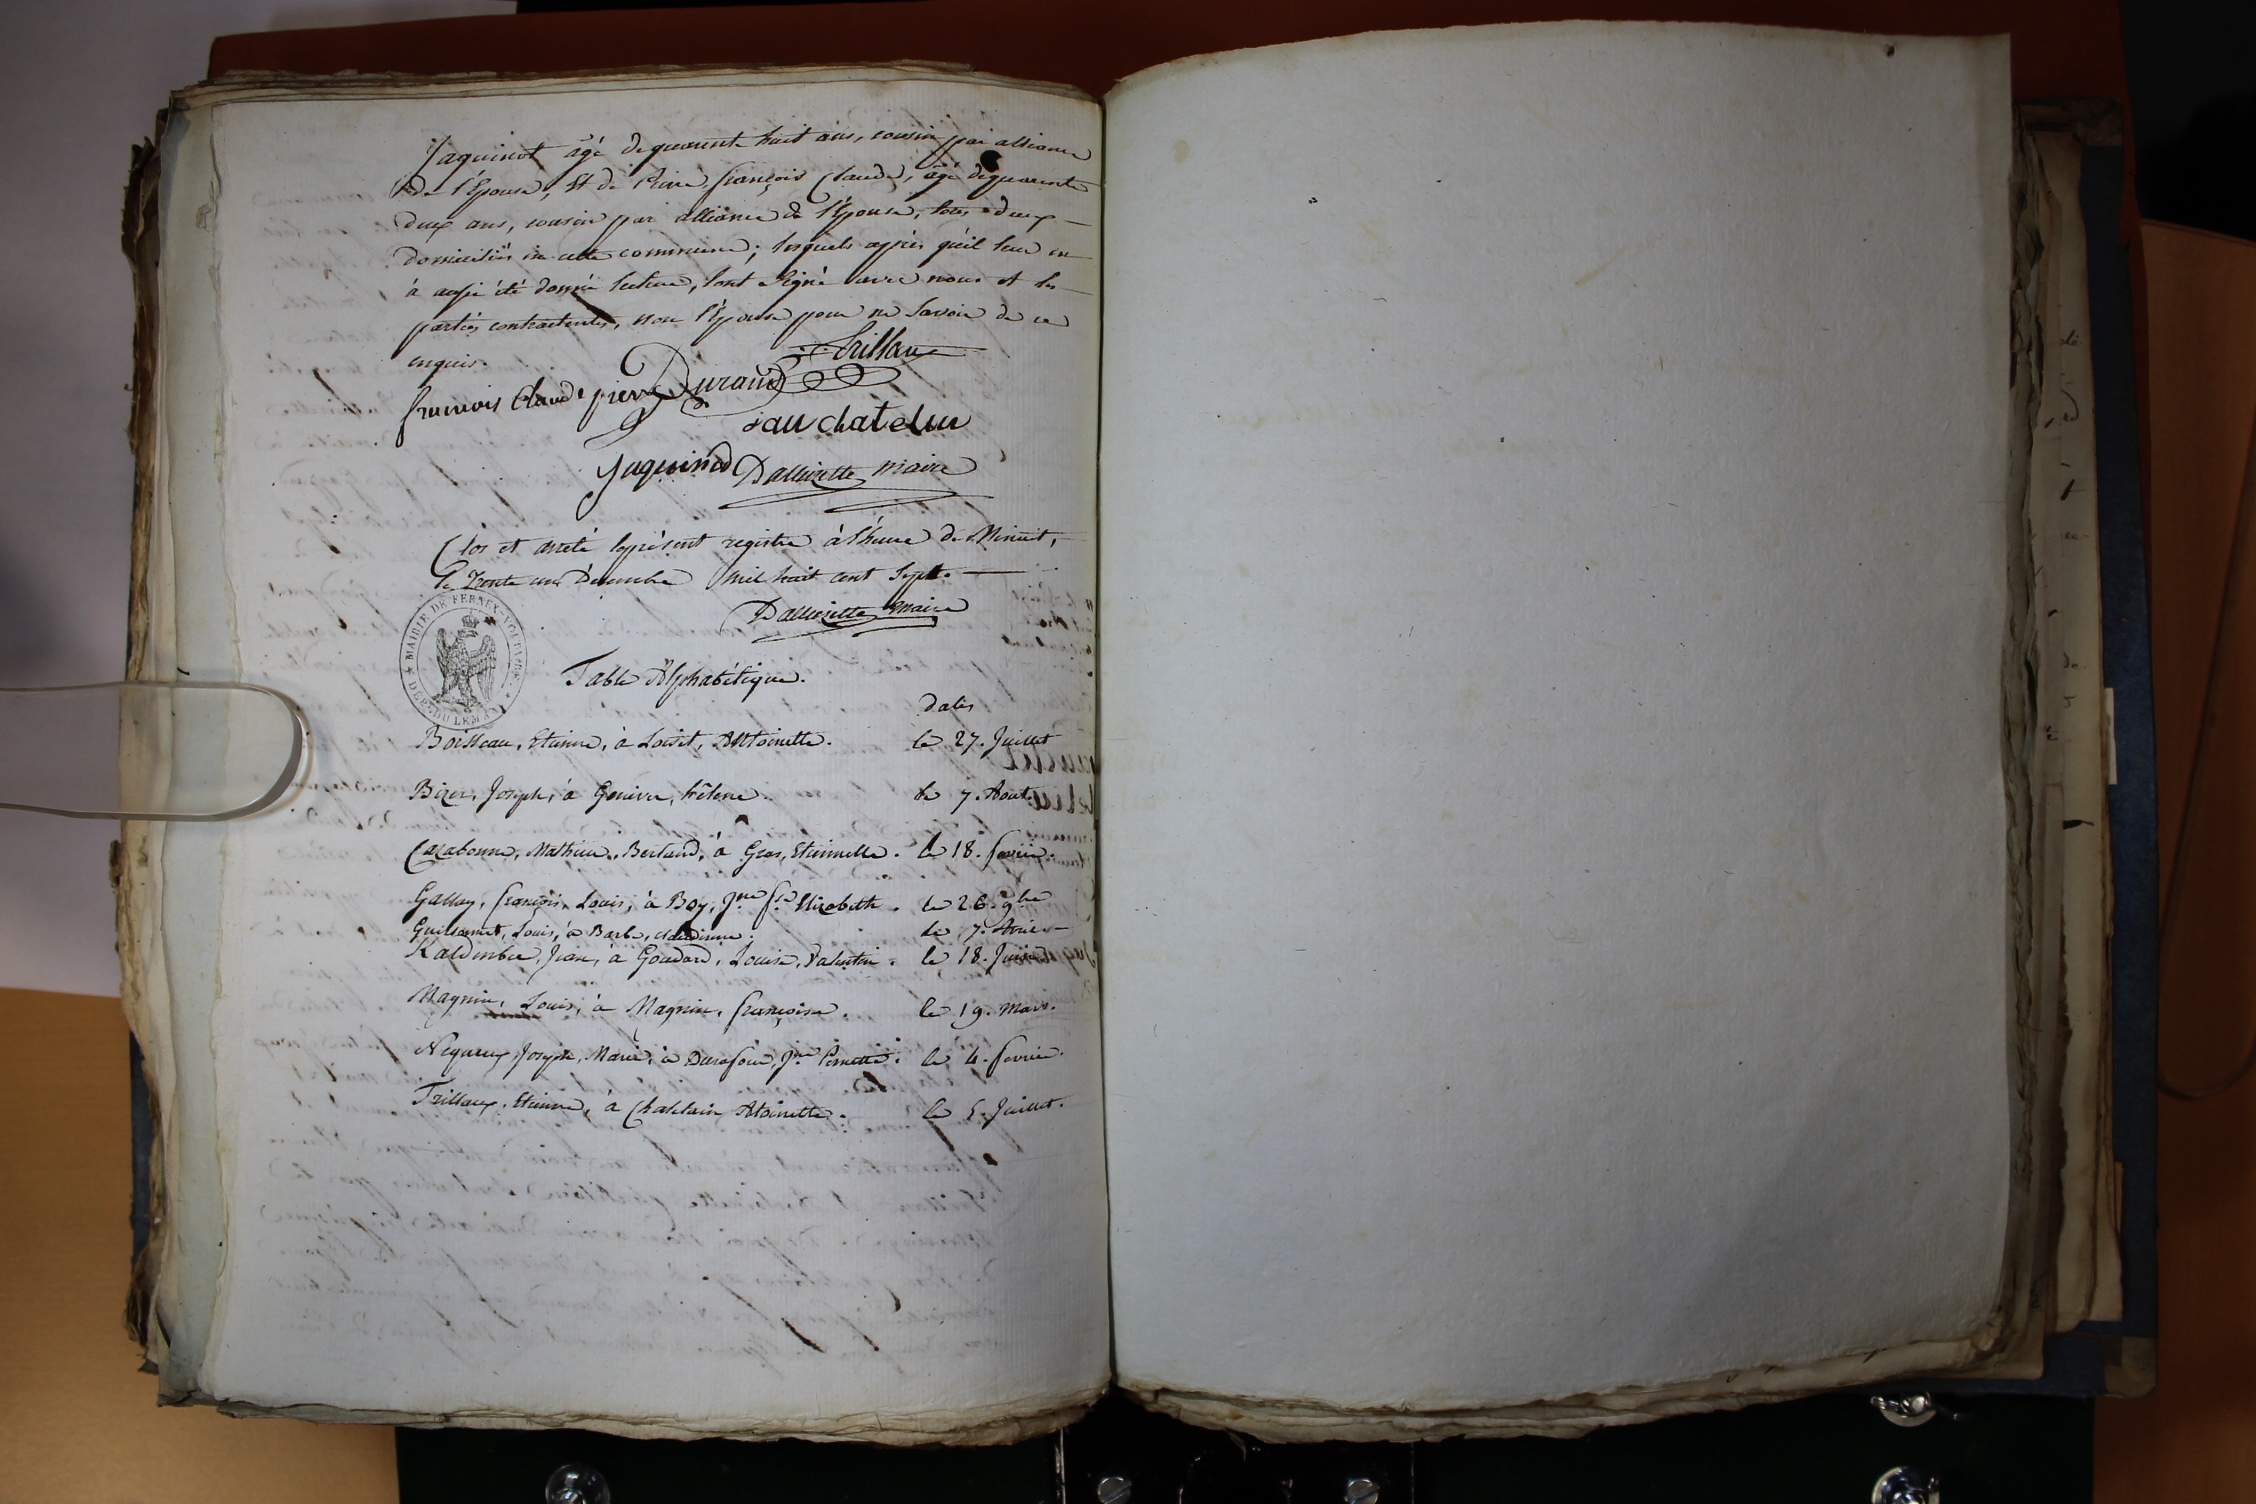 Jaquinot agé de quarente huit ans, cousin par alliance
de l'Epouse, et de Pierre françois Claude, agé de quarente
deux ans, cousin par alliance de l'Epouse, tous deux
Domiciliés en cette commune; lesquels après qu'il leur en
à aussi été donné lecture, sont signé avec nous et les
parties contractentes, non l'Epouse pour ne savoir de ce
enquis.
Trillaux
francois Claude pierre Durand
jau chatelin
Jaquinod Dallivette maire
Clos et arreté le présent registre à l'heure de Minuit,
le Trente un Décembre mil huit cent Sept.
Dallivette maire
MAIRIE DE FERNEX-VOLTAIRE
DEP. DU LEMAN
Table Alphabétique.
dates
Boisseau, Etienne, à Loiset, Antoinette. le 27. Juillet
Bizer, Joseph, à Genive, hélene. le 7. Aout.
Cazabonne, Mathieu, Bertand, à Gras, Etiennette. le 18. fevrier.
Gallay, françois, Louis, à Boy, Jne fse Elizabeth. le 26. 9bre
Guillaumet, Louis, à Barbe, claudine. le 7. Avril
Kaldenber, Jean, à Goudard, Louise, Valentin. le 18. Juin
Magnin, Louis, à Magnin, françoise. le 19. Mars.
Nequeux, Joseph, Marie, à Durafour, Jne Pernette. le 4. fevrier.
Trillaux, Etienne, à Chatelain Atoinette. le 5. Juillet.